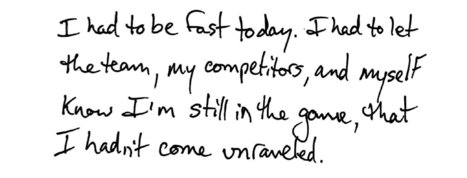 I had to be fast today. I had to let
the team, my competitors, and myself
know I'm still in the game, that
I hadn't come unraveled.